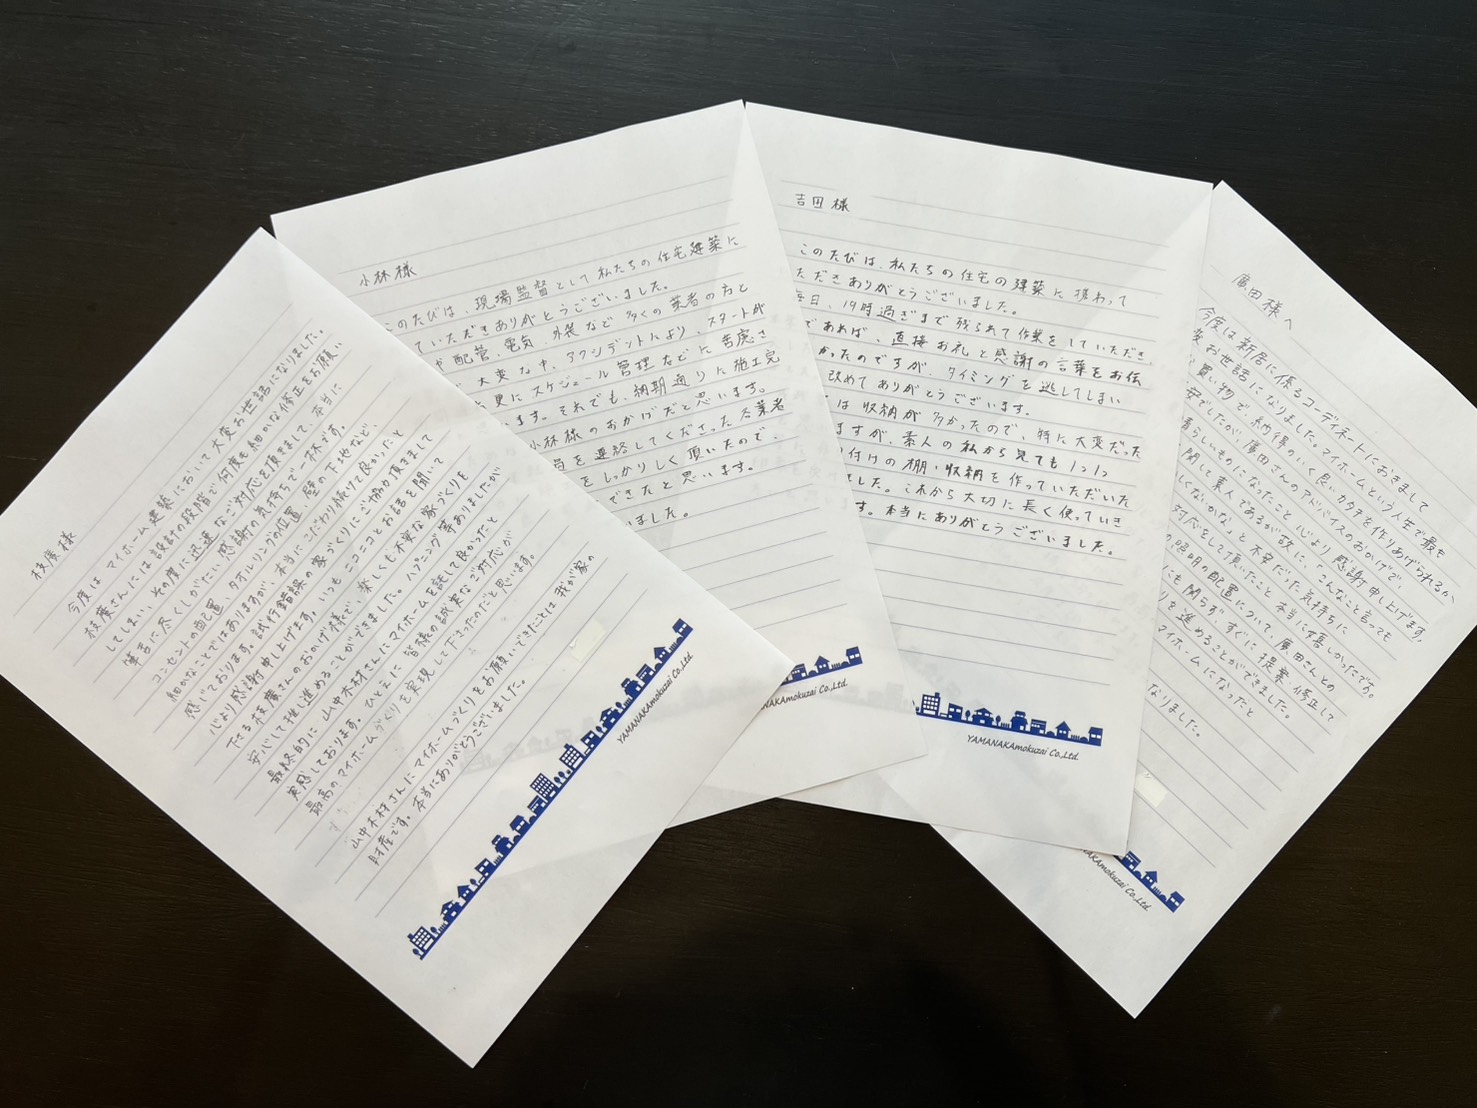 枝廣様
今度は マイホーム建築において 大変お世話になりました。
枝廣さんには 設計の段階で何度も細かな修正をお願い
してしまい、その度に迅速なご対応を頂きまして、本当に
筆舌に尽くしがたい 感謝の気持ちで一杯です。
コンセントの配置、タオルリングの位置、壁の下地など、
細かなことではありますが、本当にこだわり続けて良かったと
感じております。試行錯誤の家づくりにご協力頂きまして
心より感謝申し上げます。いつもニコニコとお話を聞いて
下さる枝廣さんのおかげ様で、楽しくも充実な家づくりを
安心して推し進めることができました。ハプニング等ありましたが
最終的に 山中木材さんにマイホームを託して良かったと
実感しております。ひとえに 皆様の誠実なご対応が
最高のマイホームづくりを実現して下さったのだと思います。
山中木材さんにマイホームづくりをお願いできたことは 我が家の
財産です。本当にありがとうございました。
YAMANAKAmokuzai Co.,Ltd
小林様
このたびは、現場監督として 私たちの住宅建築に
ていただきありがとうございました。
や配管、電気、外装など 多くの業者の方と
大変な中、アクシデントにより、スタートが
更にスケジュール管理などに苦慮さ
ます。それでも、納期通りに施工完
小林様のおかげだと思います。
を連絡してくださった各業者
をしっかりしく頂いたので、
できたと思います。
いました。
NAKAmokuzai Co.,Ltd
吉田様
このたびは、私たちの住宅の建築に携わって
ただきありがとうございました。
毎日、19時過ぎまで残られて作業をしていただき
であれば、直接お礼と感謝の言葉をお伝
かったのですが タイミングを逃してしまい
改めてありがとうございます。
は収納が多かったので、特に大変だった
ますが、素人の私から見ても 1つ1つ
付けの棚・収納を作っていただいた
ました。これから大切に長く使っていき
す。本当にありがとうございました。
YAMANAKAmokuzai Co.,Ltd
廣田様へ
今度は新居に係るコーディネートにおきまして
変お世話になりました。マイホームという人生で最も
買い物で、納得のいく良いカタチを作りあげられるか
安でしたが、廣田さんのアドバイスのおかげで、
晴らしいものになったこと 心より感謝申し上げます。
関して素人であるが故に、「こんなこと言っても
しくないかな」と不安だった気持ちに
対応をして頂いたこと 本当に嬉しかったです。
の照明の配置について、廣田さんとの
にも関らず、すぐに提案、修正して
りを進めることができました。
マイホームになったと
なりました。
NAKAmokuzai Co.,Ltd